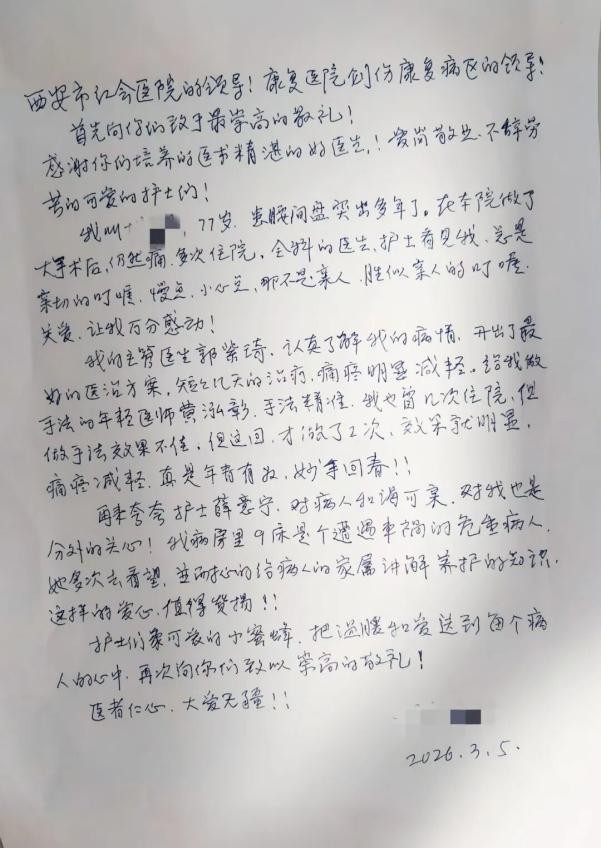 西安市红会医院的领导！康复医院创伤康复病区的领导！
首先向你们致于最崇高的敬礼！
感谢你们培养的医术精湛的好医生！爱岗敬业、不辞劳
苦的可爱的护士们！
我叫 ，77岁，患腰间盘突出多年了。在本院做了
大手术后，仍然痛，多次住院，全科的医生、护士看见我，总是
亲切的叮嘱，慢点，小心点，那不是亲人，胜似亲人的叮嘱，
关爱，让我百分感动！
我的主管医生郭紫琦，认真了解我的病情，开出了最
好的医治方案，短短几天的治疗，痛疼明显减轻。给我做
手法的年轻医师黄泓彰，手法精准，我也曾几次住院，但
做手法效果不佳，但这回，才做了2次，效果就明显，
痛疼减轻，真是年青有为，妙手回春！！
再来夸夸护士薛意宁，对病人和谒可亲，对我也是
分外的关心！我病房里9床是个遭遇车祸的危重病人，
她多次去看望，并耐心的给病人的家属讲解养护的知识，
这样的爱心，值得赞扬！！
护士们象可爱的小蜜蜂，把温暖和爱送到每个病
人的心中，再次向你们致以崇高的敬礼！
医者仁心，大爱无疆！！
2026.3.5.